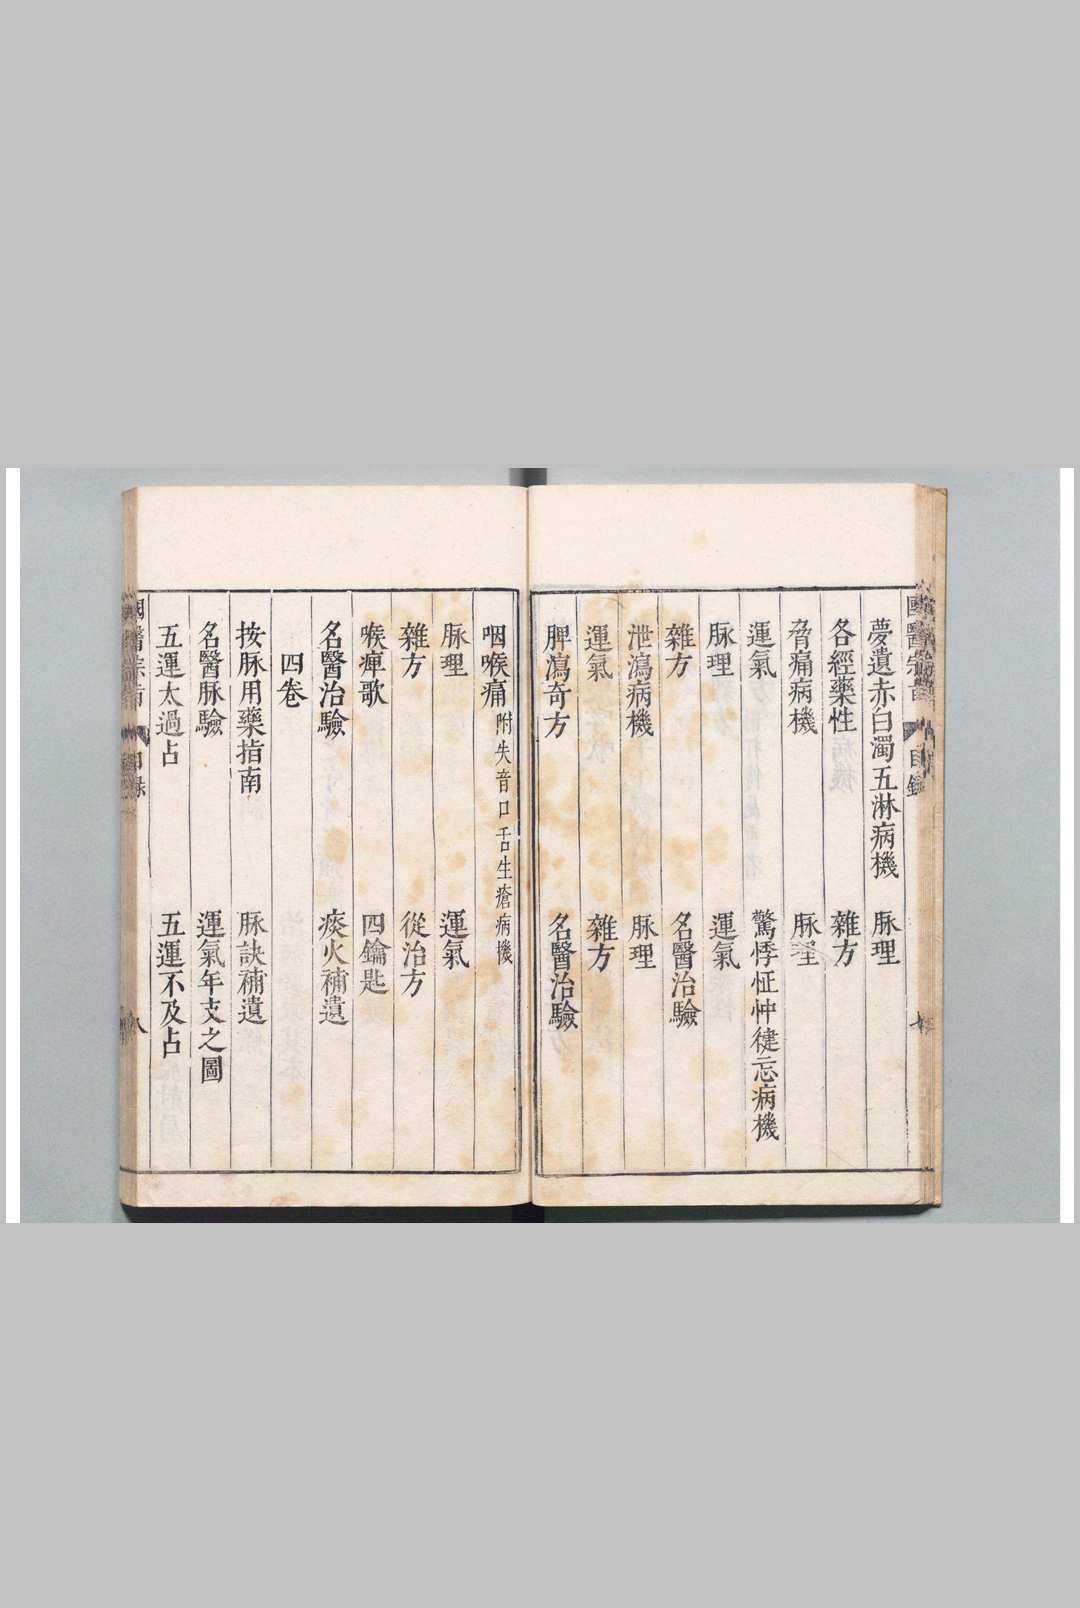 國醫宗旨 目錄
夢遺赤白濁五淋病機 脉理
各經藥性 雜方
脅痛病機 脉理
運氣 驚悸怔忡健忘病機
脉理 運氣
雜方 名醫治驗
泄瀉病機 脉理
運氣 雜方
脾瀉奇方 名醫治驗
咽喉痛附失音口舌生瘡病機
脉理 運氣
雜方 從治方
喉痺歌 四鑰匙
名醫治驗 痰火補遺
四卷
按脉用藥指南 脉訣補遺
名醫脉驗 運氣年支之圖
五運太過占 五運不及占
八